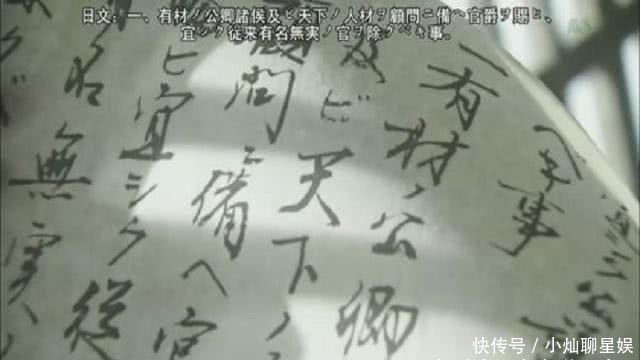 日文：一、有材ノ公卿諸侯及ビ天下ノ人材ヲ顧問ニ備ヘ官爵ヲ賜ヒ、
宜シク従来有名無実ノ官ヲ除クベキ事.
キ事
一有材ノ公卿
及ビ天下ノ
顧問ニ備ヘ官
ヒ宜シク従
名無実ノ
快传号 / 小灿聊星娱